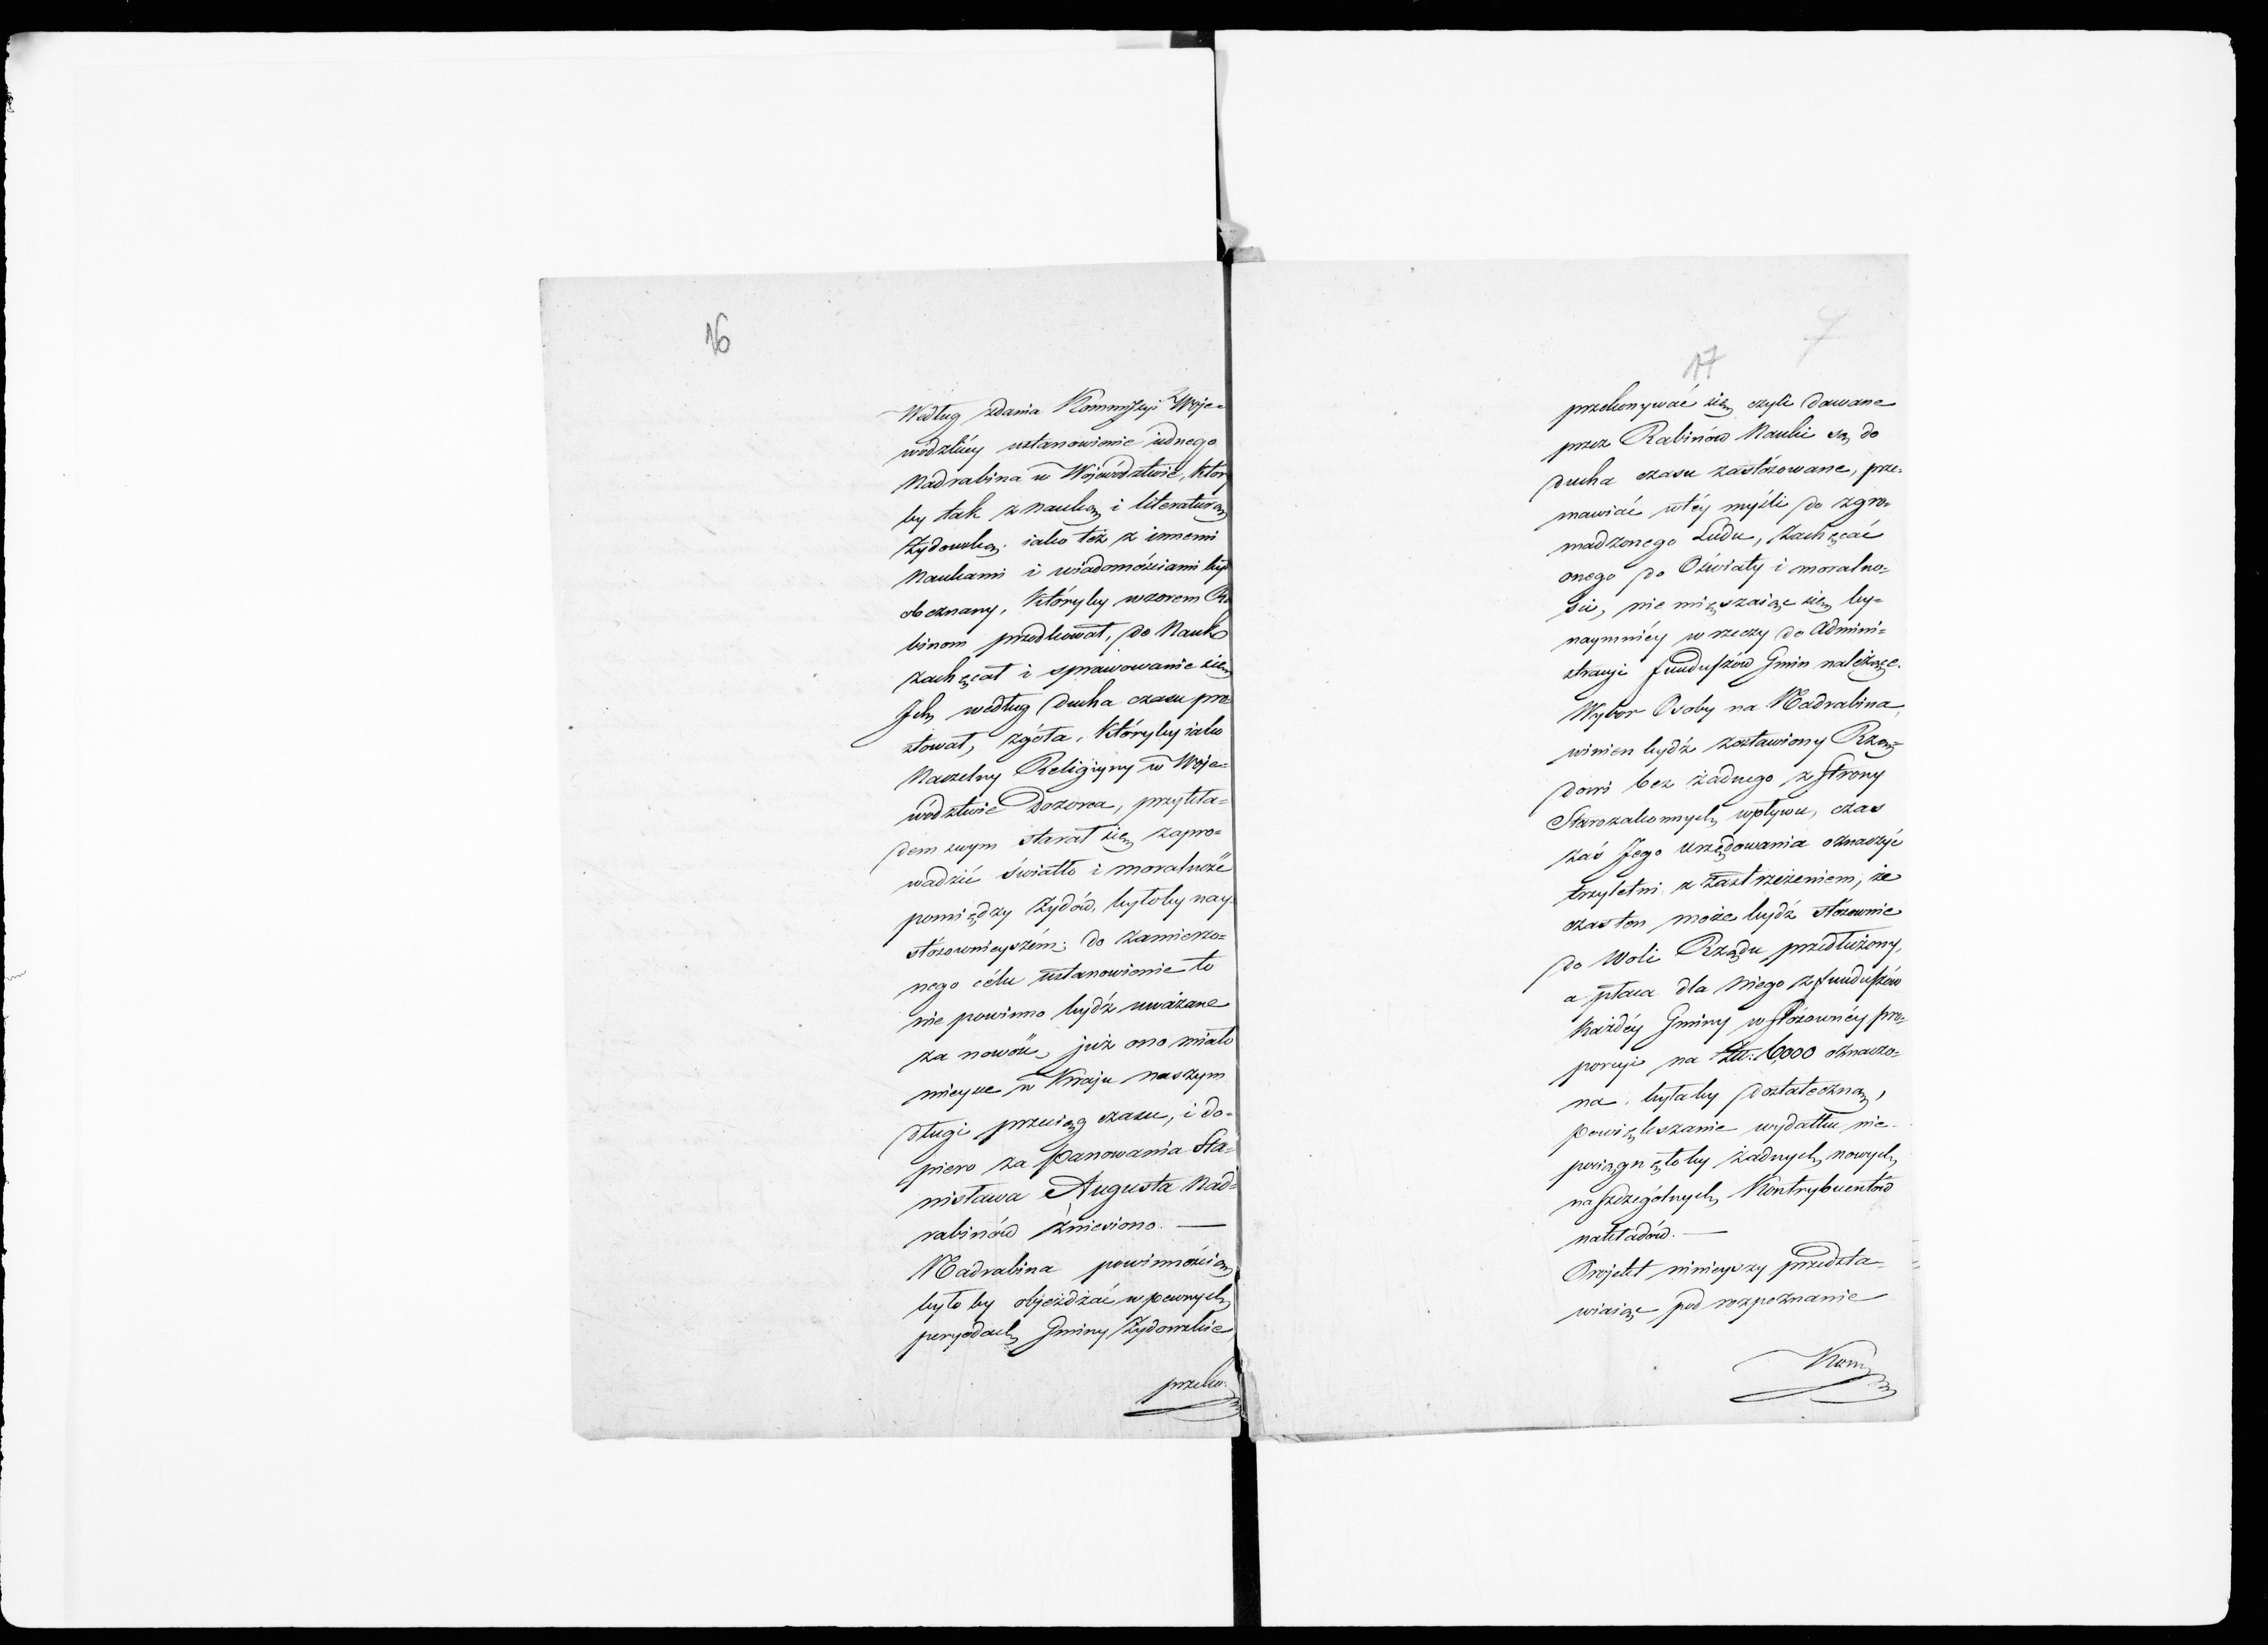 16
Według zdania Kommissyi Woje-
wódzkiéy ustanowienie iednego
Nadrabina w Wojewódzstwie, któr
by tak z nauką i literaturą
Żydowską iako też z innemi
Naukami i wiadomościami był
obeznany, któryby wzorem Ra
binom przodkował, do Nauk
zachęcał i sprawowanie się
Ich według ducha czasu pro
stował, zgoła, któryby iako
Naczelny Religiyny w Woje-
wództwie Dozorca, przykła-
dem swym starał się zapro-
wadzić światło i moralność
pomiędzy Żydów, byłoby nay-
stósownieyszém; do zamierzo-
nego célu ustanowienie to
nie powinno bydź uważane
za nowość, już ono miało
mieysce w Kraju naszym
długi przeciąg czasu, i do-
piero za Panowania Sta-
nisława Augusta Nad-
rabinów zniesiono. —
Nadrabina powinnością
było by objeżdżać w pewnych
peryodach Gminy Żydowskie
przeko-
7
17
przekonywać się czyli dawane
przez Rabinów Nauki są do
ducha czasu zastósowane, prze-
mawiać w téy myśli do zgro-
madzonego Ludu, zachęcać
onego do Oświaty i moralno-
ści, nie mięszaiąc się by-
naymniéy w rzeczy do Admini-
stracyi funduszów Gmin należące.
Wybor Osoby na Nadrabina,
winien bydź zostawiony Rzą-
dowi bez żadnego z strony
Starozakonnych wpływu, czas
zaś Jego urzędowania oznaczyć
trzyletni z zastrzeżeniem, że
czas ten może bydź stósownie
do Woli Rządu przedłużony,
a płaca dla niego z funduszów
Każdéy Gminy w stósownéy pro-
porcyi na Złt: 6,000 oznaczo-
na, byłaby dostateczną,
powiększanie wydatku nie
pociągnęłoby żadnych nowych
na szczególnych Kontrybuentów
nakładów. —
Projekt ninieyszy przedsta-
wiaiąc pod rozpoznanie
Kom